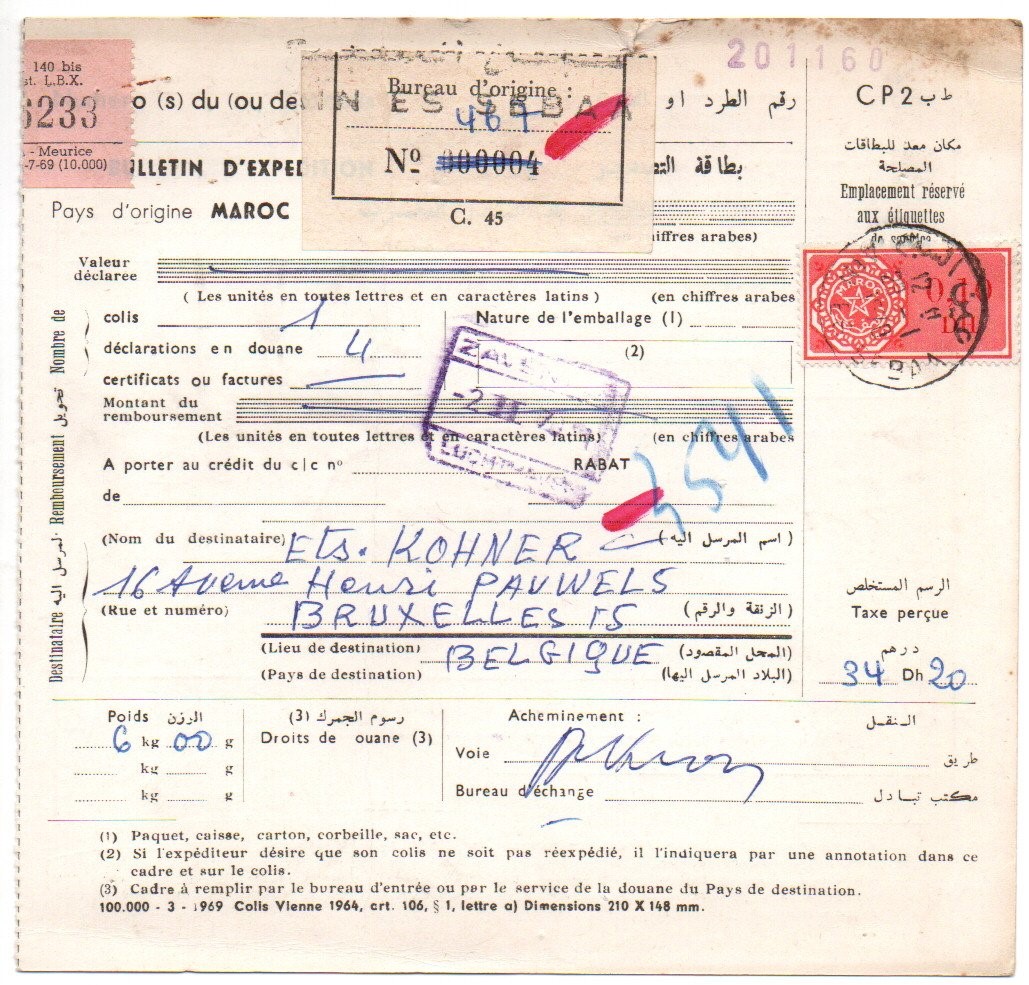 140 bis
st. L.B.X.
6233
- Meurice
-7-69 (10.000)
201160
o (s) du (ou de
Bureau d'origine :
IN ES SEBAA
467
Nº 000004
C. 45
رقم الطرد او
CP2 ط ب
BULLETIN D'EXPED
بطاقة
Pays d'origine MAROC
iffres arabes)
مكان معد للبطاقات
المصلحة
Emplacement réservé
aux étiquettes
de service
MAROC
Valeur
déclaree
( Les unités en toutes lettres et en caractères latins ) (en chiffres arabes
Nombre de
colis 1
Nature de l'emballage (1)
déclarations en douane 4
(2)
certificats ou factures
ZAVENTEM
-2 II 7
Montant du
remboursement
(Les unités en toutes lettres et en caractères latins) (en chiffres arabes
Remboursement تحويل
3541
A porter au crédit du c|c nº RABAT
de
Destinataire المرسل اليه
(Nom du destinataire) Ets. KOHNER (اسم المرسل اليه)
16 Avenue Henri PAUWELS
(Rue et numéro) BRUXELLES 15 (الزنقة والرقم)
(Lieu de destination) BELGIQUE (المحل المقصود)
(Pays de destination) (البلاد المرسل اليها)
الرسم المستخلص
Taxe perçue
درهم
34 Dh 20
Poids الوزن
6 kg 00 g
kg g
kg g
(3) رسوم الجمرك
Droits de ouane (3)
Acheminement : النقل
Voie طريق
Bureau d'échange مكتب تبادل
(1) Paquet, caisse, carton, corbeille, sac, etc.
(2) Si l'expéditeur désire que son colis ne soit pas réexpédié, il l'indiquera par une annotation dans ce
cadre et sur le colis.
(3) Cadre à remplir par le bureau d'entrée ou par le service de la douane du Pays de destination.
100.000 - 3 - 1969 Colis Vienne 1964, art. 106, § 1, lettre a) Dimensions 210 X 148 mm.